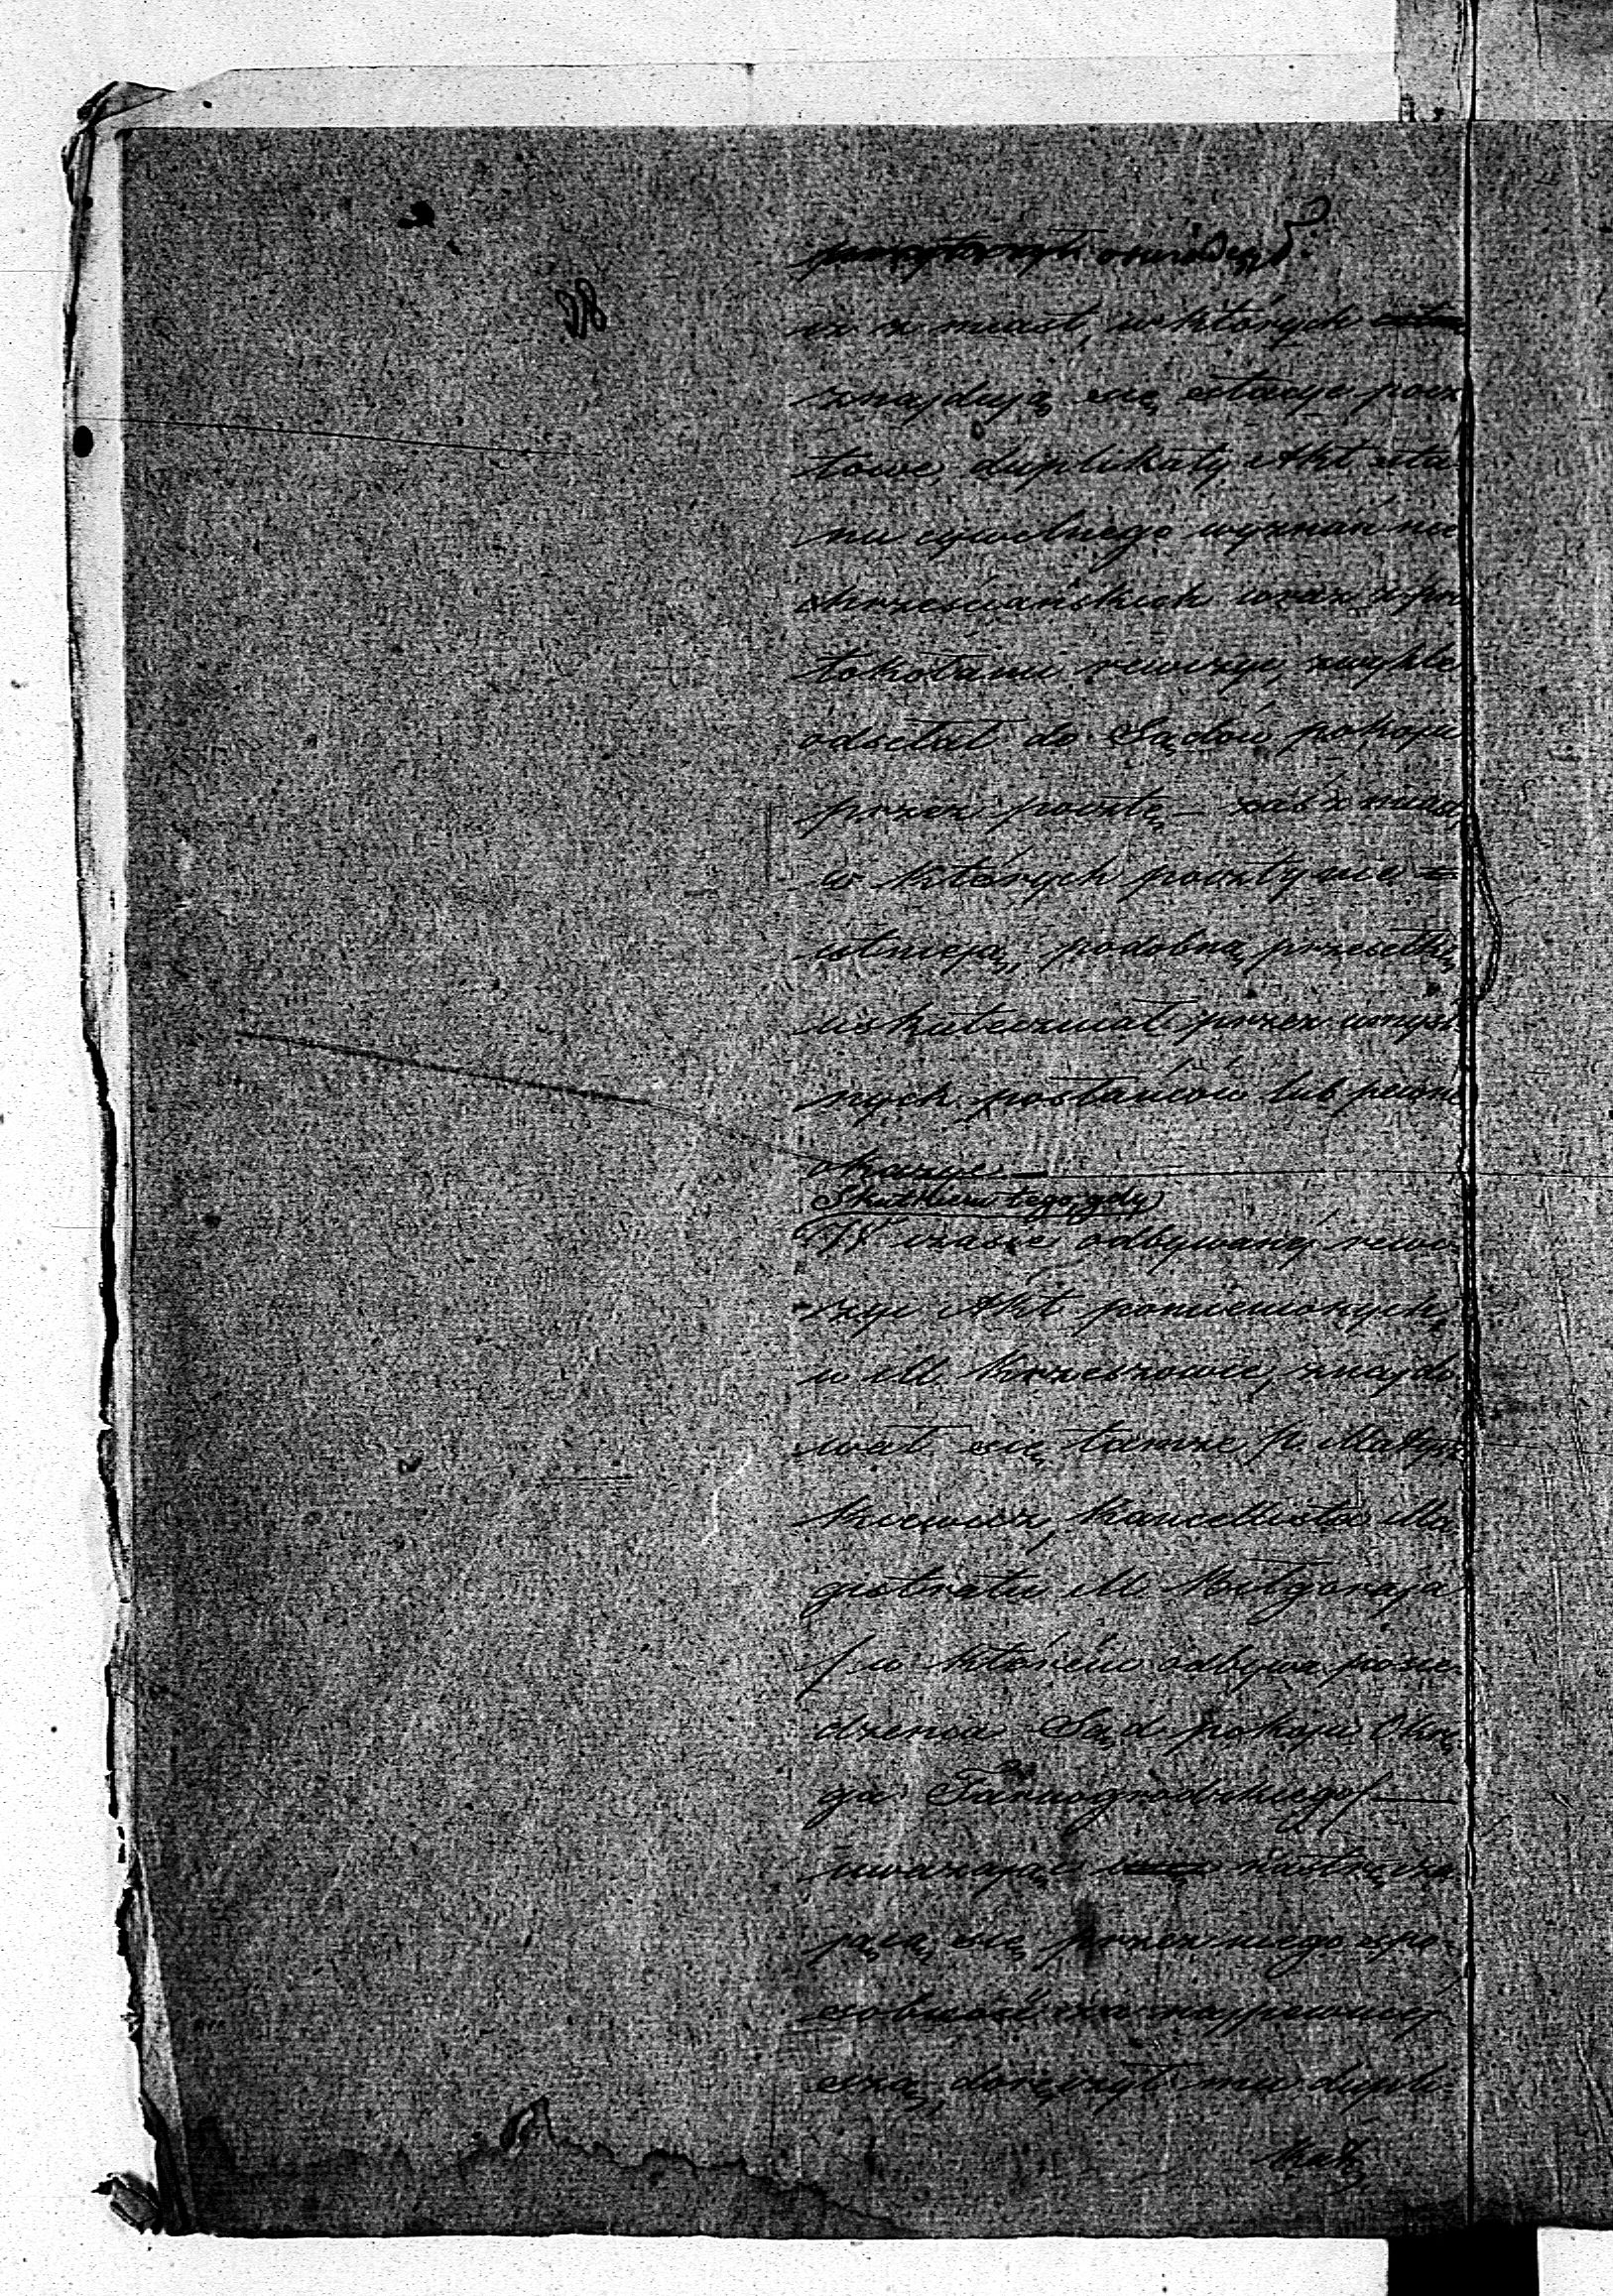 iż z miast, w których
znajdują się stacye pocz
towe, duplikaty Akt sta
nu cywilnego wyznań nie
chrześciańskich wraz z pro
tokołami rewizyi, zwykle
odsełał do Sądów pokoju
przez pocztę – zaś z miast,
w których poczty nie
istnieją, podobną przesełkę
uskuteczniał przez umyśl
nych posłańców lub pewne
okazye. —
Skutkiem tego, gdy
W czasie odbywanéj rewi
zyi Akt pomienionych,
w M. Krzeszowie, znajdo
wał się tamże p. Matysz
kiewicz, Kancellista Ma
gistratu M. Biłgoraja
/ w którém odbywa posie
dzenia Sąd pokoju Okrę
gu Tarnogrodzkiego / —
uważając nastręcza
jącą się przez niego spo-
sobność za najpewniej
szą, doręczył mu dupli-
katy